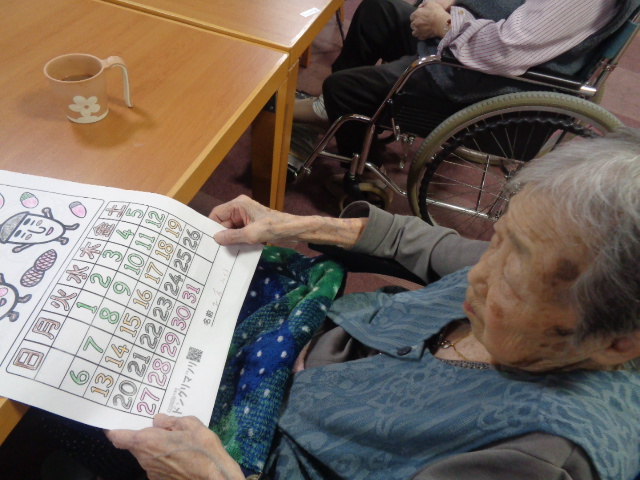 日 月 火 水 木 金 土
1 2 3 4 5
6 7 8 9 10 11 12
13 14 15 16 17 18 19
20 21 22 23 24 25 26
27 28 29 30 31
名前